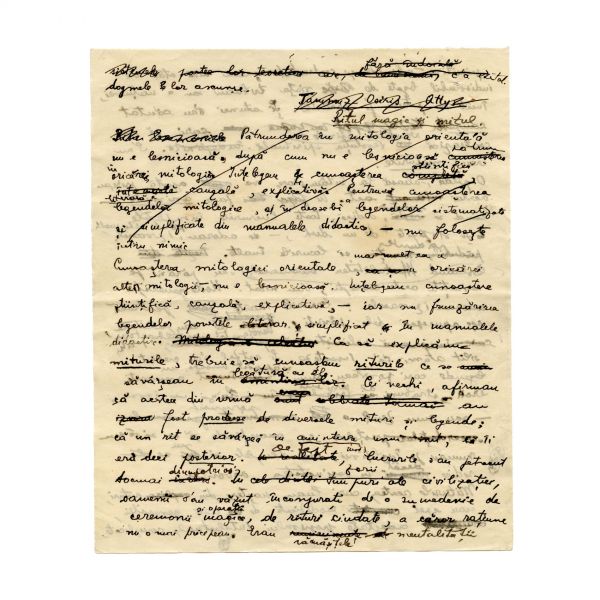 fără îndoială
pentru cei teoretici
ca ritul
dogmele lor anume.
Tammuz Osiris - Attys
Ritul magic și mitul.
Pătrunderea în mitologia orientală
nu e lesnicioasă, după cum nu e lesnicioasă pătrunderea
în oricărei mitologii. Înțelegem o cunoaștere științifică
cauzală, explicativă. Pentru cunoașterea
legendelor mitologice, și în deosebi legendelor sistematizate
și simplificate din manualele didactice, — nu folosește
întru nimic.
Cunoașterea mitologiei orientale, mai mult ca a oricărei
altei mitologii, nu e lesnicioasă. Înțelegem cunoaștere
științifică, cauzală, explicativă, — iar nu frunzărirea
legendelor povestite literar, simplificat în manualele
didactice. Ca să explicăm
miturile, trebuie să cunoaștem riturile ce se
săvârșeau în legătură cu ele. Cei vechi, afirmau
că acestea din urmă au
fost produse de diversele mituri și legende;
că un rit se săvârșea în amintirea unui mit, că-i
era deci posterior. De fapt, lucrurile s'au petrecut
tocmai dimpotrivă. În zorii timpurilor civilizației,
oamenii s'au văzut înconjurați de o sumedenie de
ceremonii și operații magice, de rituri ciudate, a căror rațiune
nu o mai pricepeau. Erau rămășițele mentalității